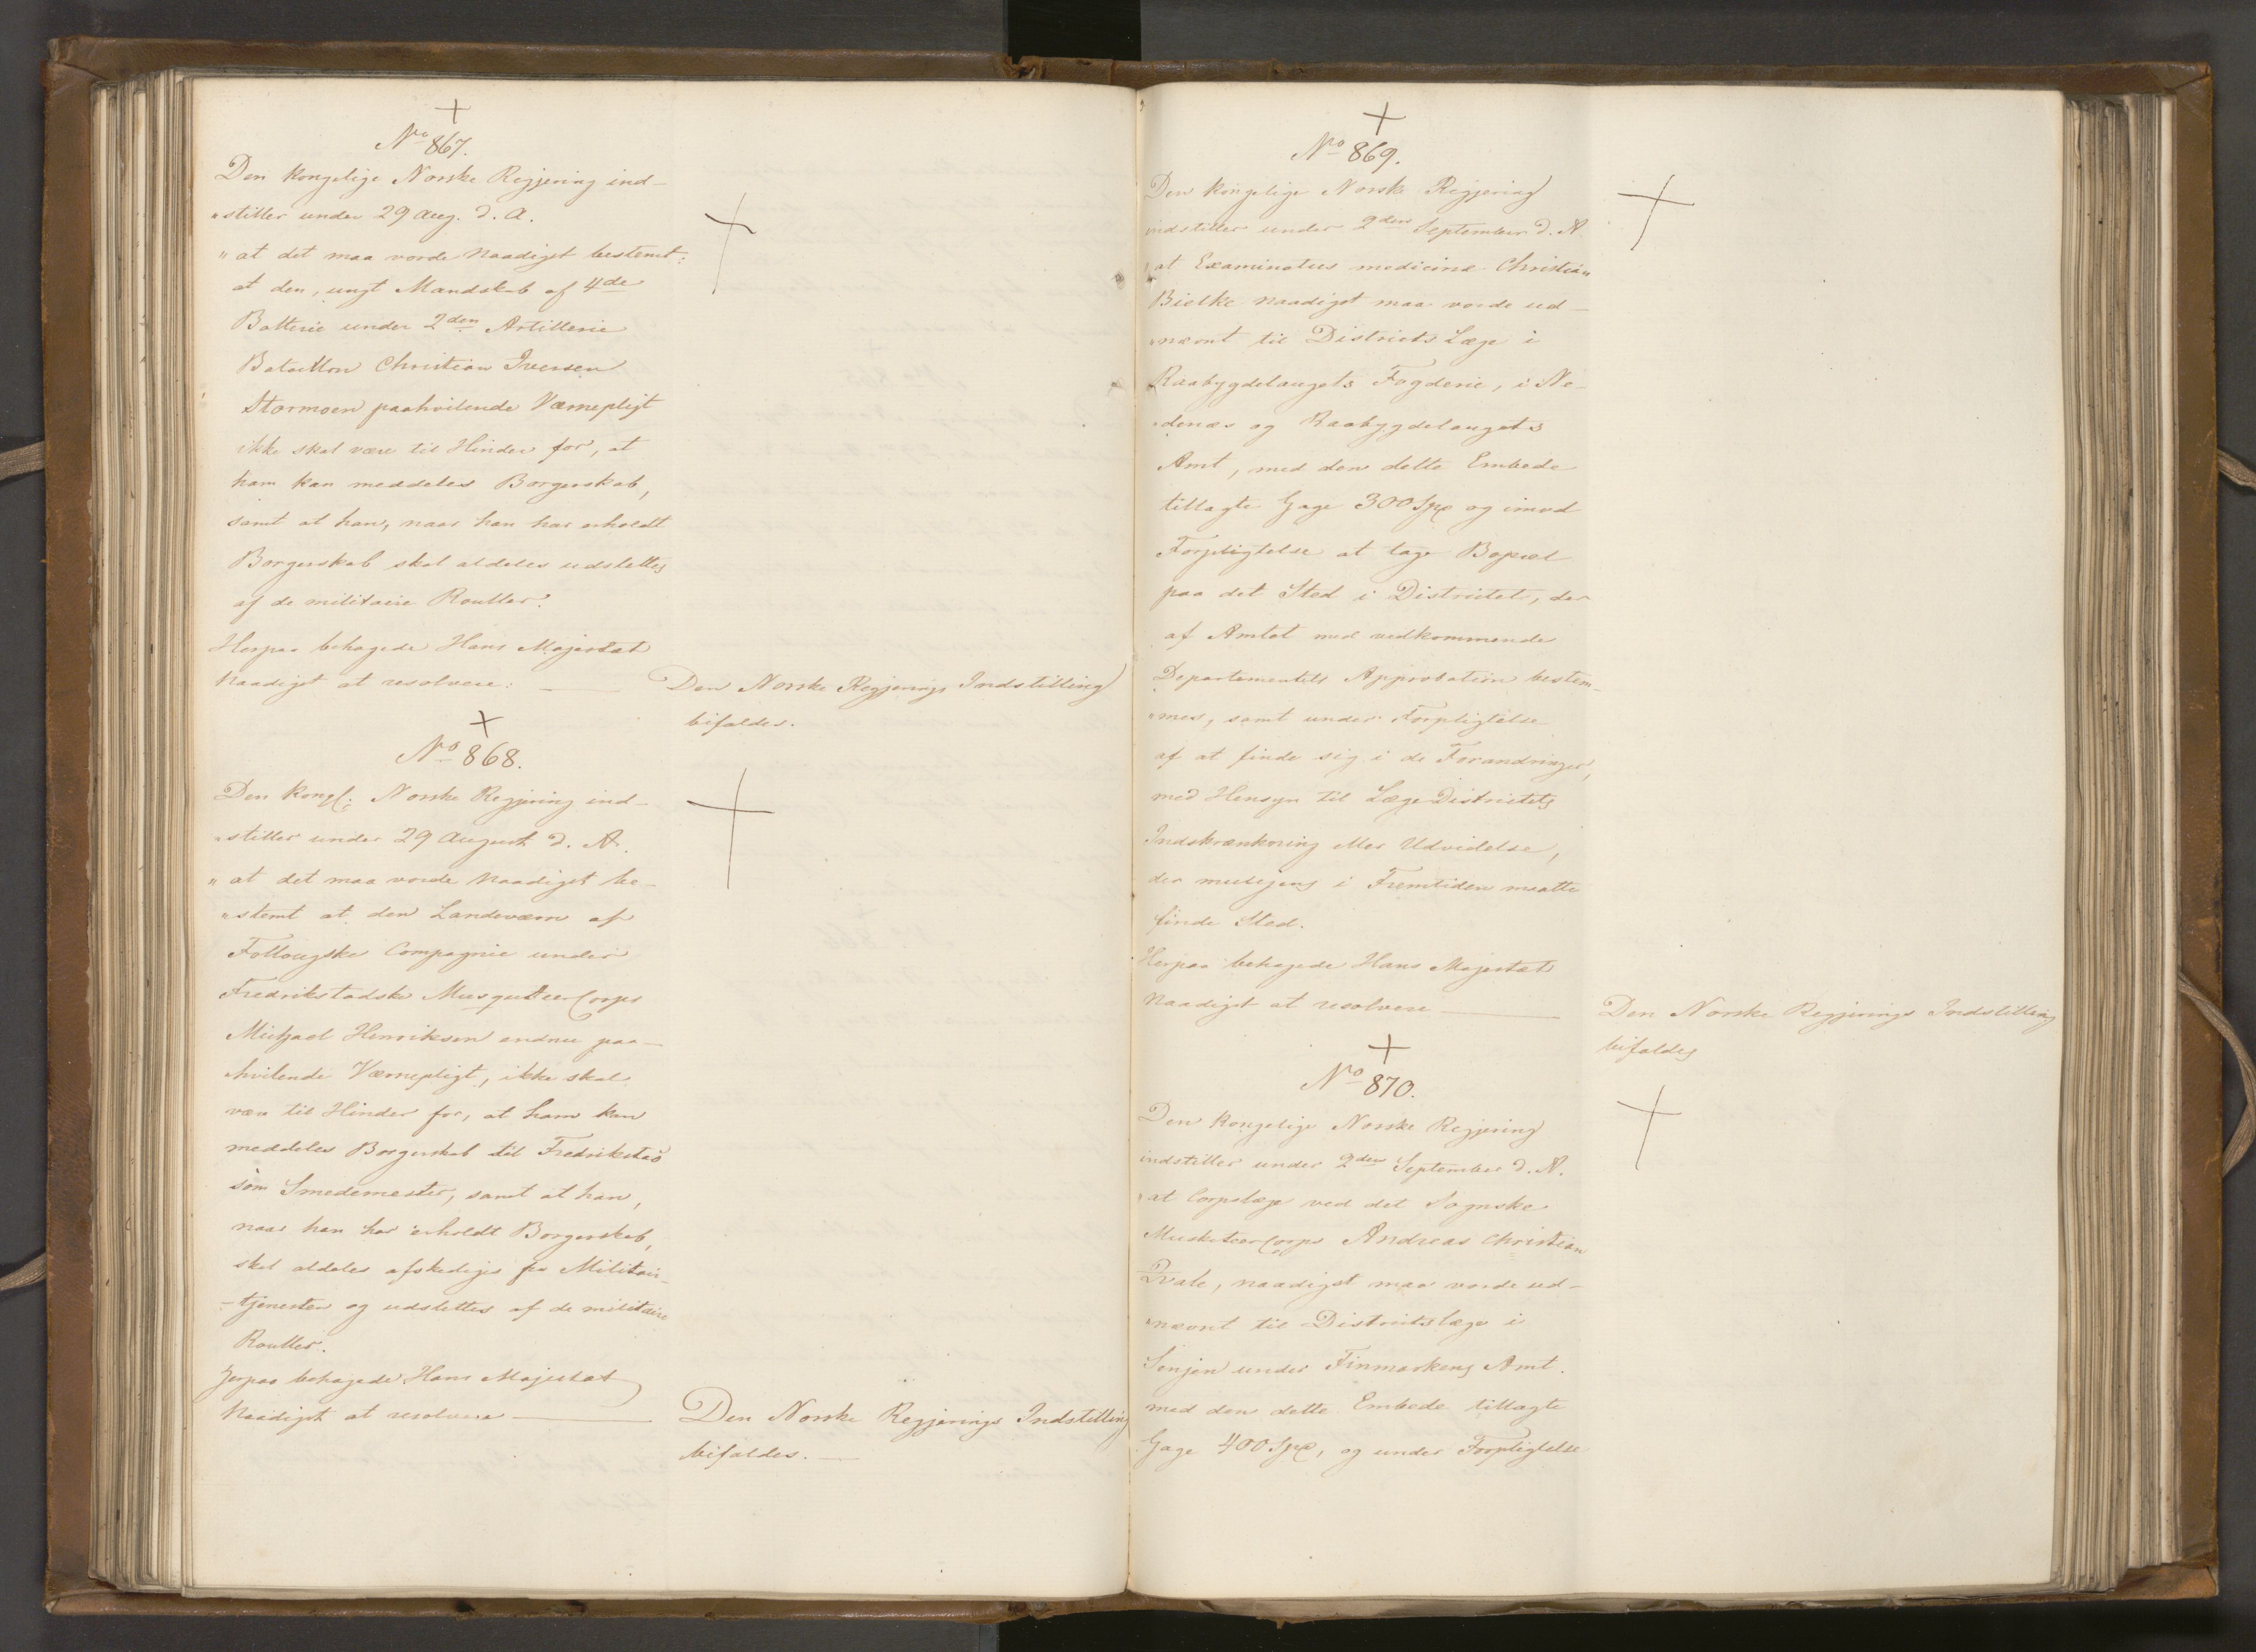 No 867.
Den kongelige Norske Regjering ind-
"stiller under 29 Aug. d. A.
"at det maa vorde Naadigst bestemt:
at den, ungt Mandskab af 4de
Batterie under 2den Artillerie
Bataillon Christian Iversen
Stormoen paahvilendeVærnepligt
ikke skal være til Hinder for, at
ham kan meddeles Borgerskab,
samt at han, naar han har erholdt
Borgerskab skal aldeles udslettes
af de militaire Rouller.
Herpaa behagede Hans Majestæt
Naadigst at resolvere: —
Den Norske Regjerings Indstilling
bifaldes.
No 868.
Den Kongl: Norske Regjering ind-
"stiller under 29 August d. A.
"at det maa vorde Naadigst be-
"stemt at den Landeværn af
Follougske Compagnie under
Fredrikstadske Musqueteer Corps
Michael Henriksen endnu paa-
hvilende Værnepligt, ikke skal
være til Hinder for, at ham kan
meddeles Borgerskab til Fredrikstad
som Smedemester, samt at han,
naar han har erholdt Borgerskab,
skal aldeles afskediges fra Militair-
-tjenesten og udslettes af de militaire
Rouller.
Herpaa behagede Hans Majestæt
Naadigst at resolvere —
Den Norske Regjerings Indstilling
bifaldes. —
No 869.
Den kongelige Norske Regjering
indstiller under 2den September d. A.
"at Examinatus medicinæ Christian
Bielke naadigst maa vorde ud-
"nævnt til Districts Læge i
Raabygdelaugets Fogderie, i Ne-
"denæs og Raabygdelaugets
Amt, med den dette Embede
tillagte Gage 300 Spd og imod
Forpligtelse at tage Bopæl
paa det Sted i Districtet, der
af Amtet med vedkommende
Departements Approbation bestem-
"mes, samt under Forpligtelse
af at finde sig i de Forandringer,
med Hensyn til Læge Districtets
Indskrænkning eller Udvidelse,
der muligens i Fremtiden maatte
finde Sted.
Herpaa behagede Hans Majestæt
Naadigst at resolvere —
Den Norske Regjerings Indstilling
bifaldes
No 870.
Den Kongelige Norske Regjering
indstiller under 2den September d. A.
"at Corpslæge ved det Sognske
Musketeer Corps Andreas Christian
Qvale, naadigst maa vorde ud-
"nævnt til Districtslæge i
Senjen under Finmarkens Amt.
med den dette Embede tillagte
Gage 400 Spd, og under Forpligtelse